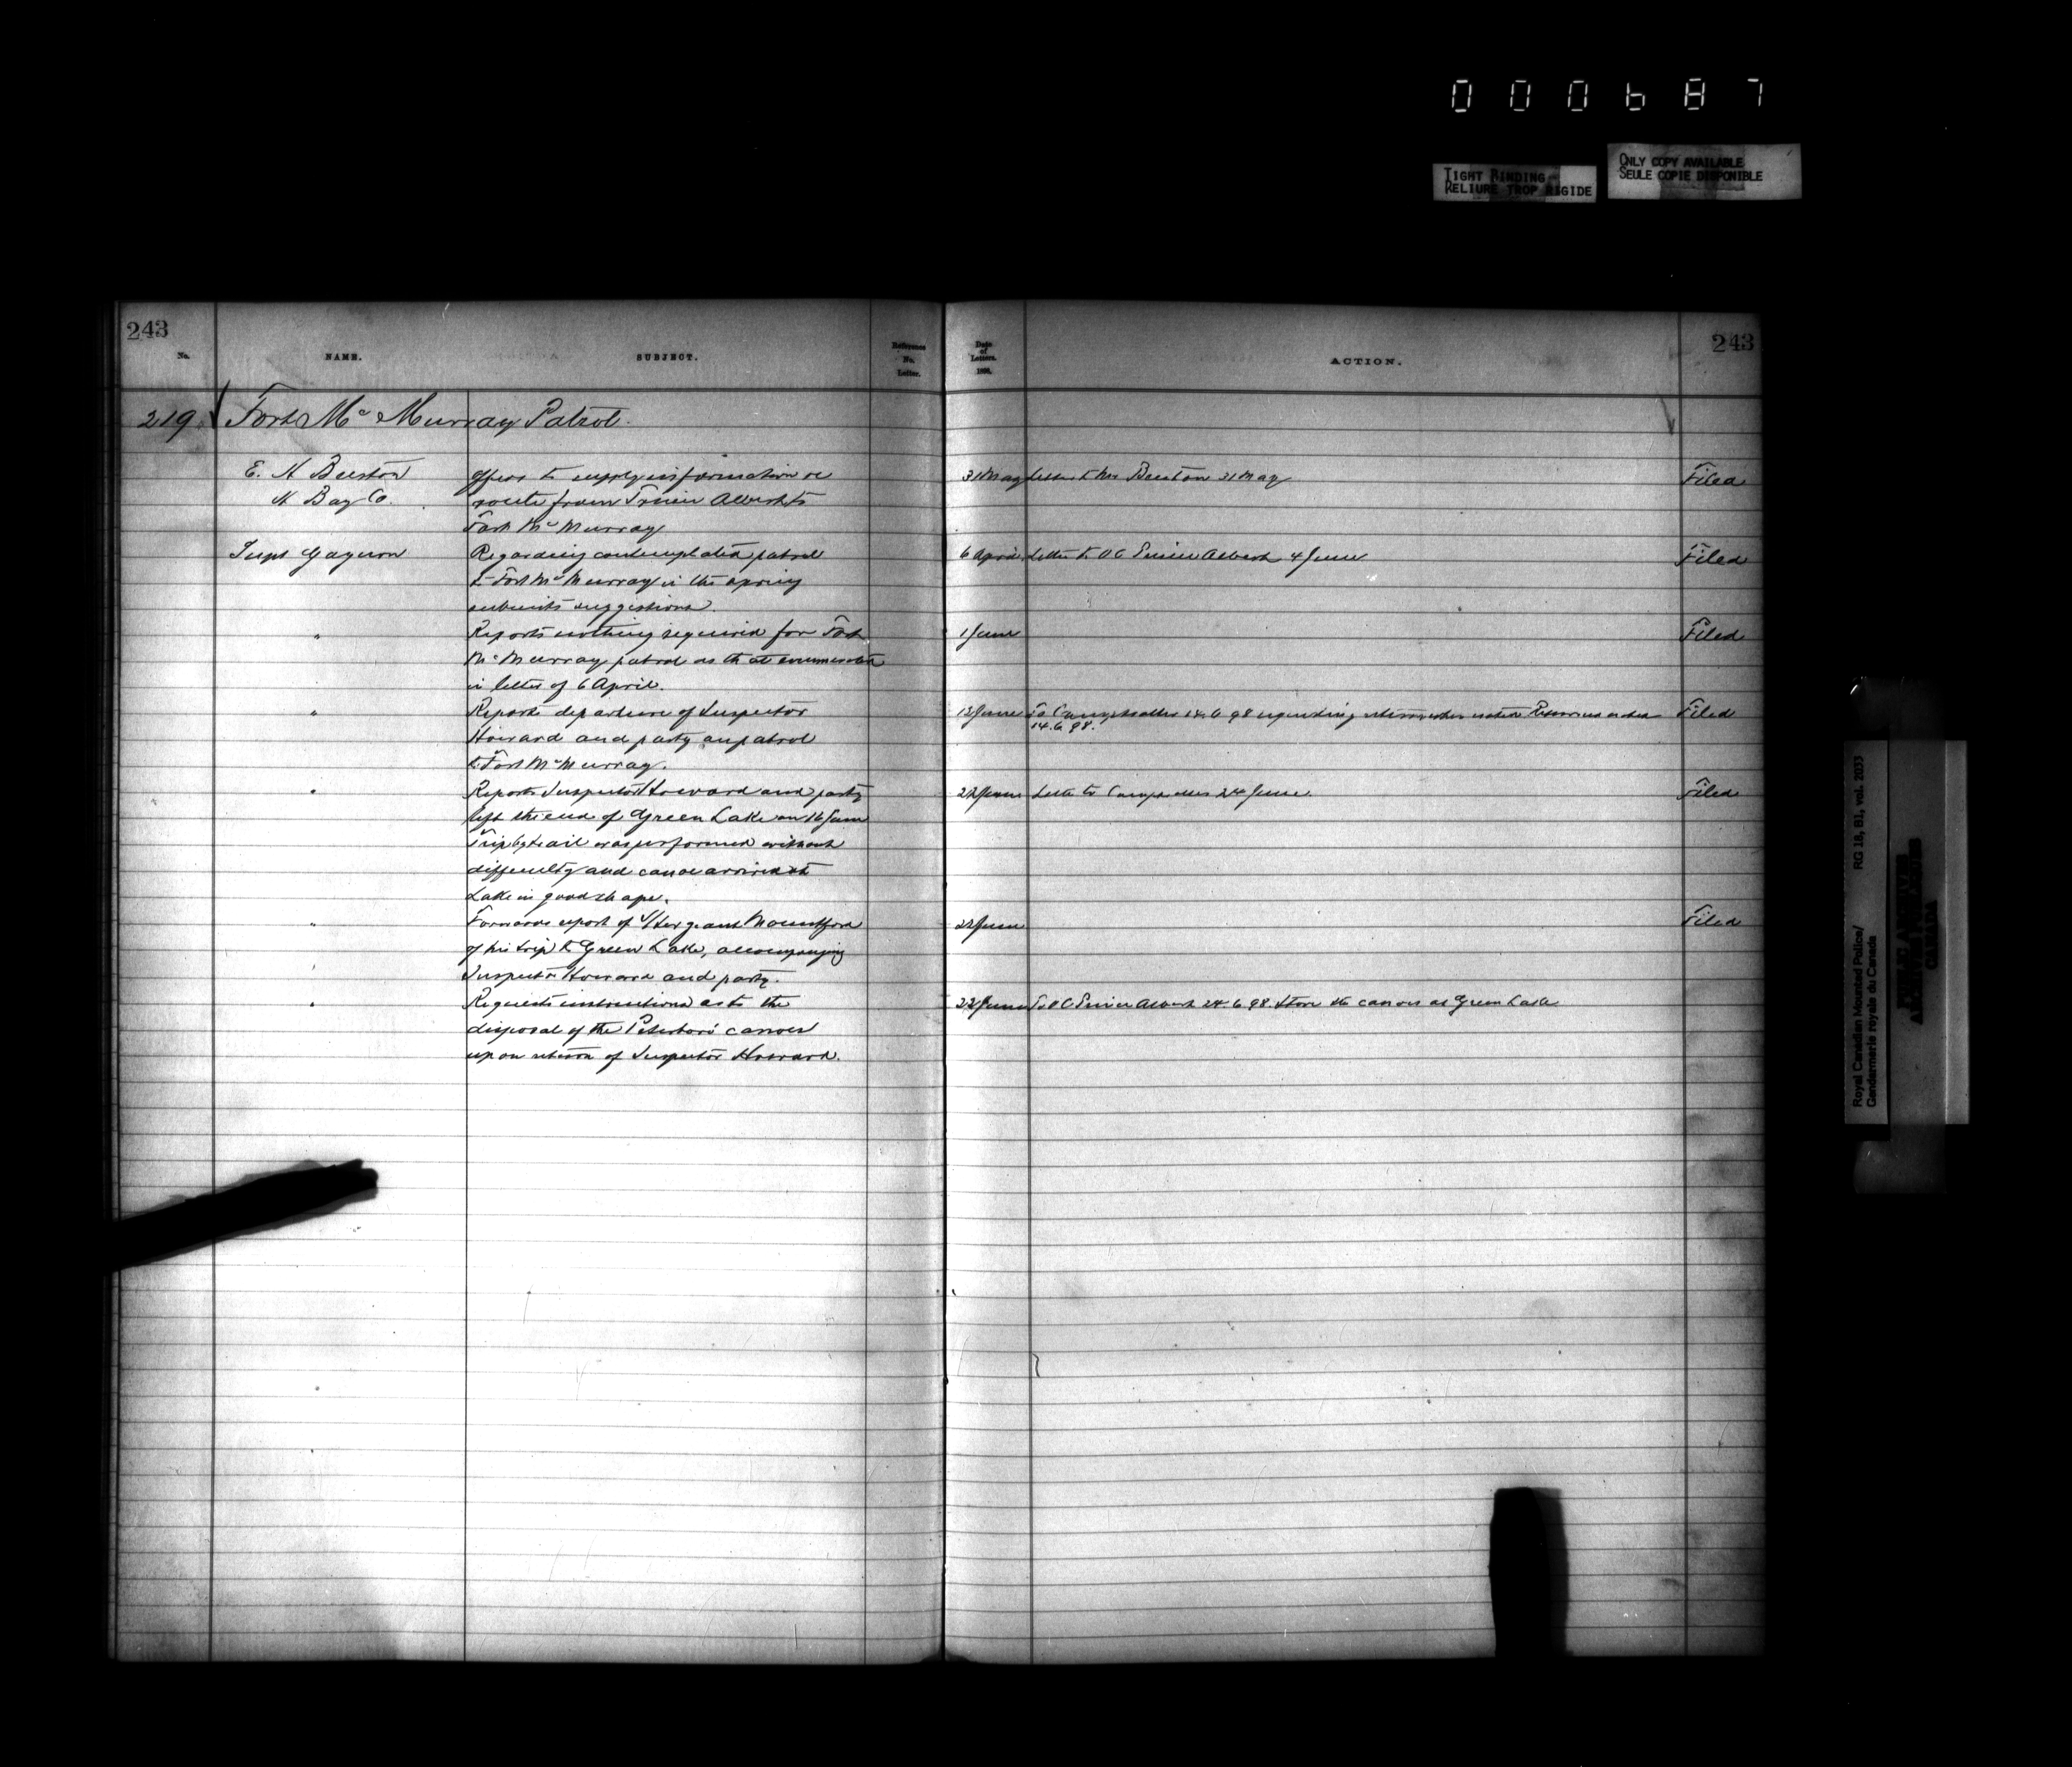 000687
TIGHT BINDING
RELIURE TROP RIGIDE
ONLY COPY AVAILABLE
SEULE COPIE DISPONIBLE
243
No.
NAME.
SUBJECT.
Reference
No.
Letter.
Date
of
Letters.
ACTION.
243
219 Fort Mc Murray Patrol.
E. H Beeston
H Bay Co.
Offers to supply information re
route from Prince Albert to
Fort Mc Murray
31 May
Letter to Mr Beeston 31 May
Filed
Supt Gagnon
Regarding contemplated patrol
to Fort Mc Murray in the spring
submits suggestions.
6 April
Letter to O C Prince Albert 4 June
Filed
"
Reports nothing required for Fort
Mc Murray patrol as that enumerated
in letter of 6 April.
1 June
Filed
"
Reports departure of Inspector
Howard and party on patrol
to Fort Mc Murray.
13 June
To Comptroller 14.6.98 regarding
14.6.98.
Filed
"
Reports Inspector Howard and party
left the end of Green Lake on 16 June
Trip by trail was performed without
difficulty and canoe arrived at
Lake in good shape.
22 June
Letter to Comptroller 24 June
Filed
"
Forwards report of S/Sergeant Mountford
of his trip to Green Lake, accompanying
Inspector Howard and party.
22 June
Filed
"
Requests instructions as to the
disposal of the Peterboro canoes
upon return of Inspector Howard.
22 June
To O C Prince Albert 24.6.98. Store the canoes at Green Lake
Royal Canadian Mounted Police/
Gendarmerie royale du Canada
RG 18, B1, vol. 2033
PUBLIC ARCHIVES
ARCHIVES PUBLIQUES
CANADA